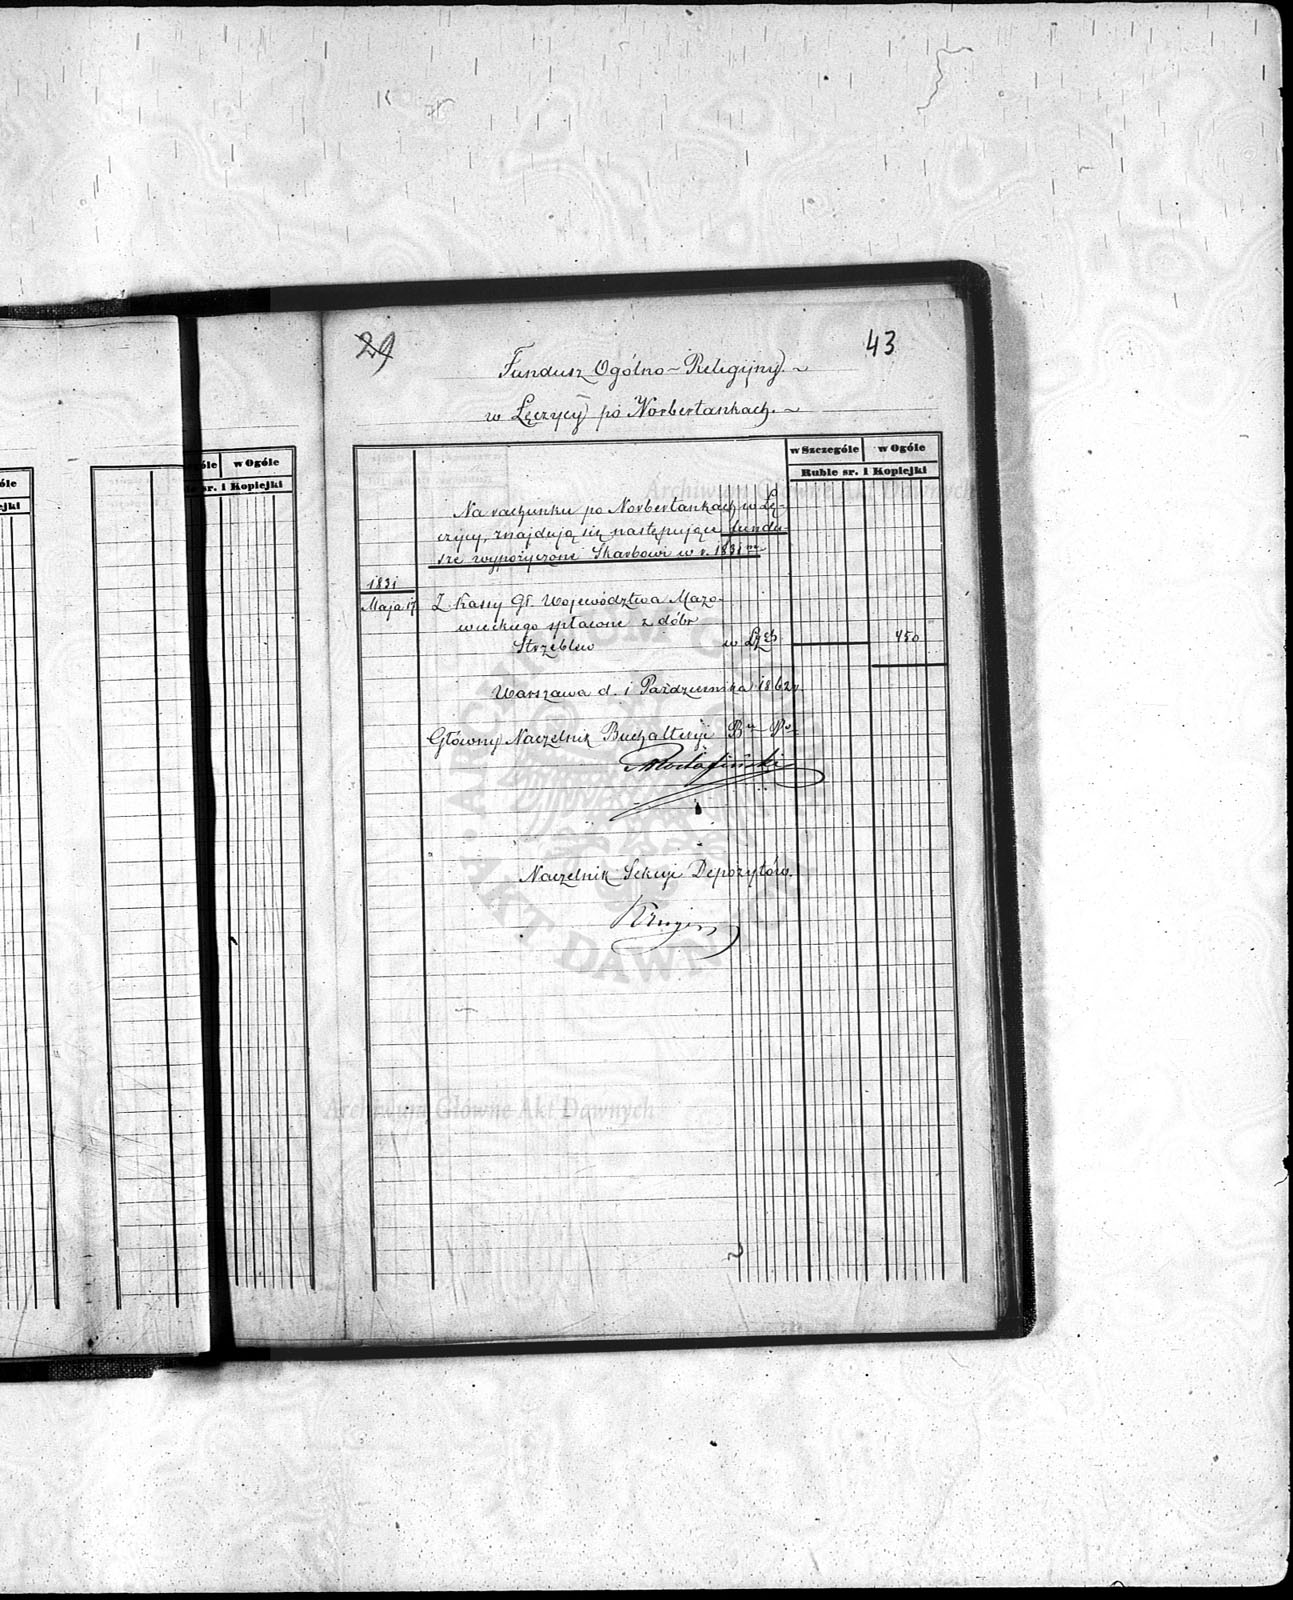 29
43
Fundusz Ogólno-Religijny. ~
w Łęczycy po Norbertankach. ~
óle
w Ogóle
w Szczególe
w Ogóle
óle
sr. i Kopiejki
Ruble sr. i Kopiejki
ejki
Na rachunku po Norbertankach w Łę-
czycy, znajdują się następujące fundu-
sze wypożyczone Skarbowi w r. 1831m
1831
Maja 17
Z Kassy Gł. Województwa Mazo-
wieckiego spłacone z dóbr
Strzeblew w
450
Warszawa d. 1 Października 1862 r.
Główny Naczelnik Buchalteryi
Naczelnik Sekcji Depozytów.
ARCHIWUM GŁÓWNE
AKT DAWNYCH
Archiwum Główne Akt Dawnych
Archiwum Główne Akt Dawnych